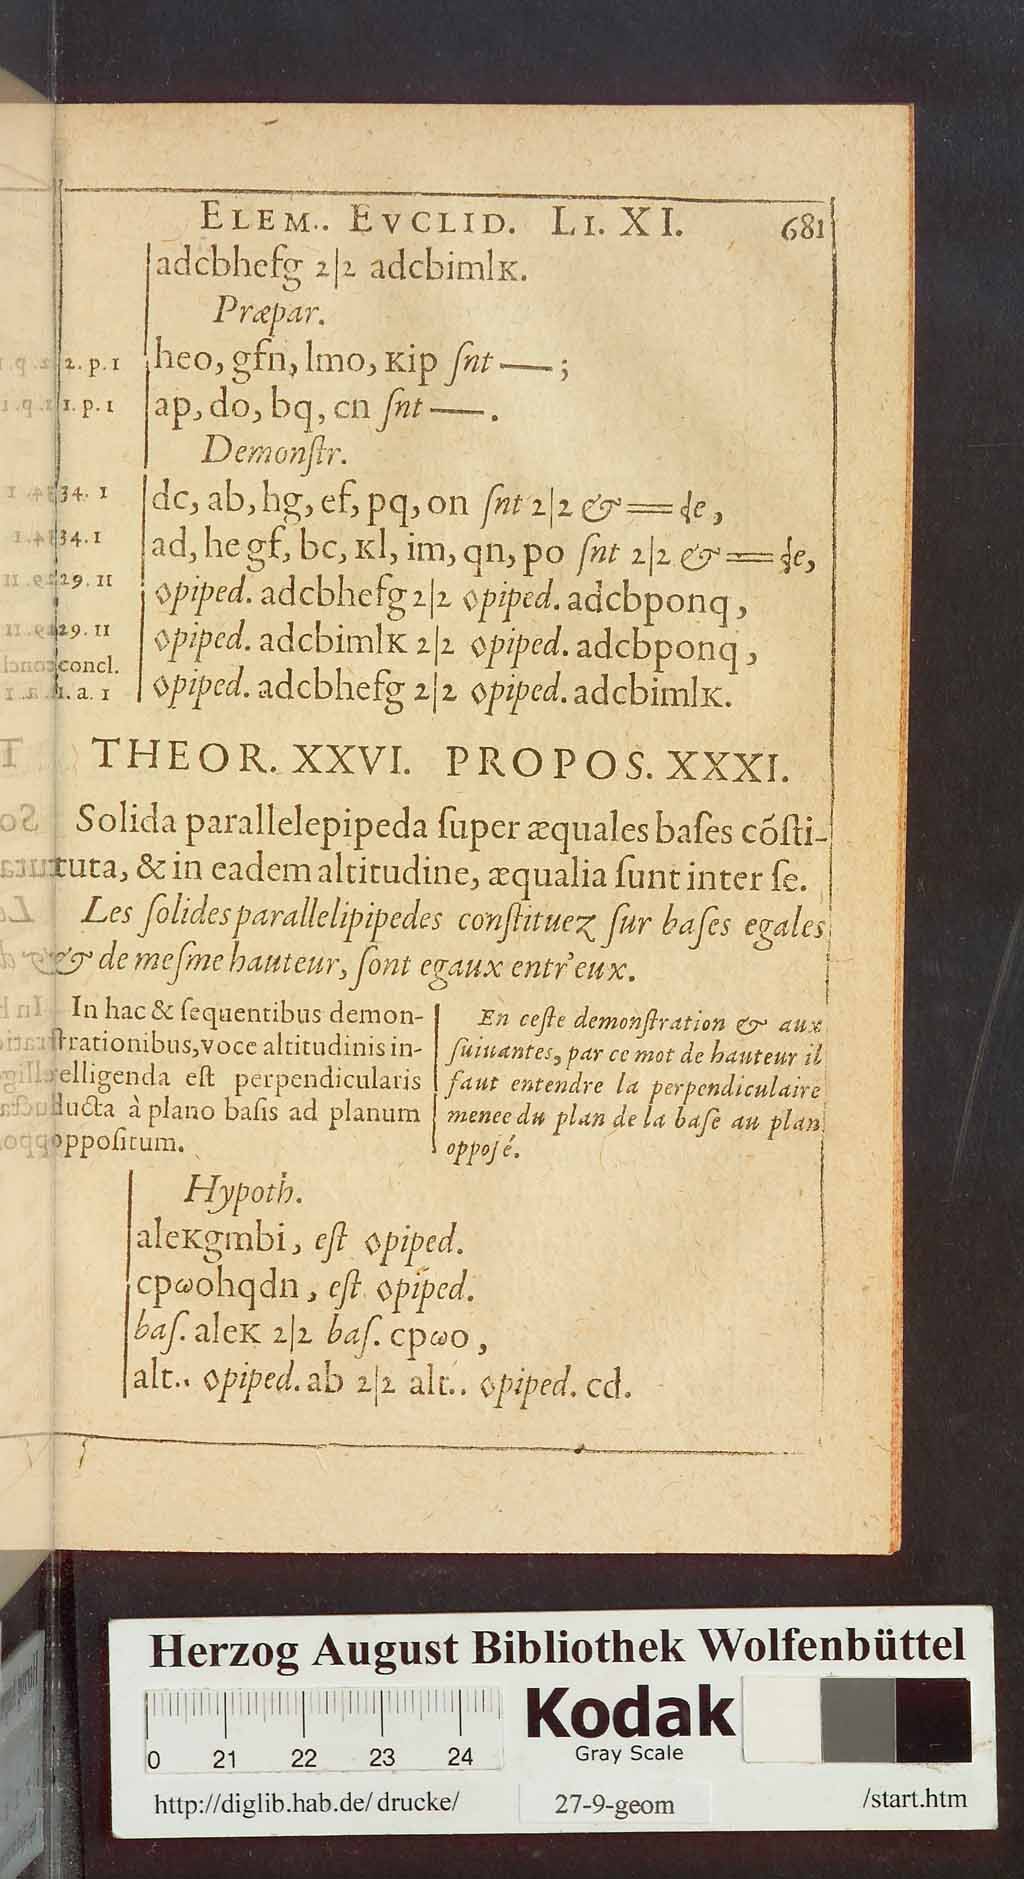 ELEM.. EVCLID. LI. XI. 681
adcbhefg 2|2 adcbimlK.
Præpar.
2. p. 1 heo, gfn, lmo, Kip ſnt — ;
1. p. 1 ap, do, bq, cn ſnt — .
Demonſtr.
34. 1 dc, ab, hg, ef, pq, on ſnt 2|2 & = de,
34. 1 ad, he gf, bc, Kl, im, qn, po ſnt 2|2 & = de,
29. 11 ◊piped. adcbhefg 2|2 ◊piped. adcbponq,
29. 11 ◊piped. adcbimlK 2|2 ◊piped. adcbponq,
concl.
1. a. 1 ◊piped. adcbhefg 2|2 ◊piped. adcbimlK.
THEOR. XXVI. PROPOS. XXXI.
Solida parallelepipeda ſuper æquales baſes cõſti-
tuta, & in eadem altitudine, æqualia ſunt inter ſe.
Les ſolides parallelipipedes conſtituez ſur baſes egales
& de meſme hauteur, ſont egaux entr'eux.
In hac & ſequentibus demon-
ſtrationibus, voce altitudinis in-
elligenda eſt perpendicularis
ducta à plano baſis ad planum
oppoſitum.
En ceſte demonſtration & aux
ſuiuantes, par ce mot de hauteur il
faut entendre la perpendiculaire
menee du plan de la baſe au plan
oppoſé.
Hypoth.
aleKgmbi, eſt ◊piped.
cpωohqdn, eſt ◊piped.
baſ. aleK 2|2 baſ. cpωo,
alt.. ◊piped. ab 2|2 alt.. ◊piped. cd.
Herzog August Bibliothek Wolfenbüttel
Kodak
Gray Scale
0 21 22 23 24
http://diglib.hab.de/drucke/ 27-9-geom /start.htm